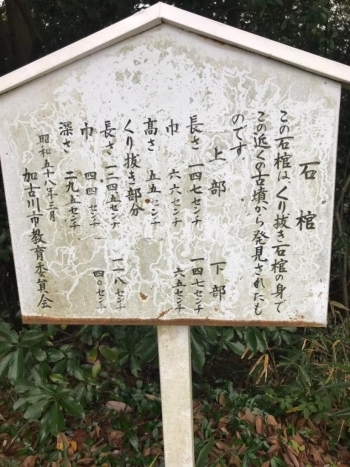 石棺
この石棺は、くり抜き石棺の身で
この近くの古墳から発見されたも
のです。
上部 下部
長さ 一四七センチ 一四七センチ
巾 六六センチ 六五センチ
高さ 五五センチ
くり抜き部分
長さ 一二四五センチ 一一八センチ
巾 四四センチ 四〇センチ
深さ 二九五センチ
昭和五十八年三月
加古川市教育委員会